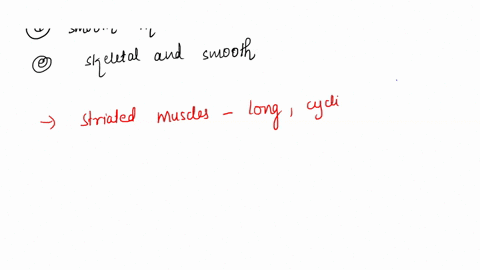 ⓓ smooth
ⓔ skeletal and smooth
→ striated muscles - long, cycli